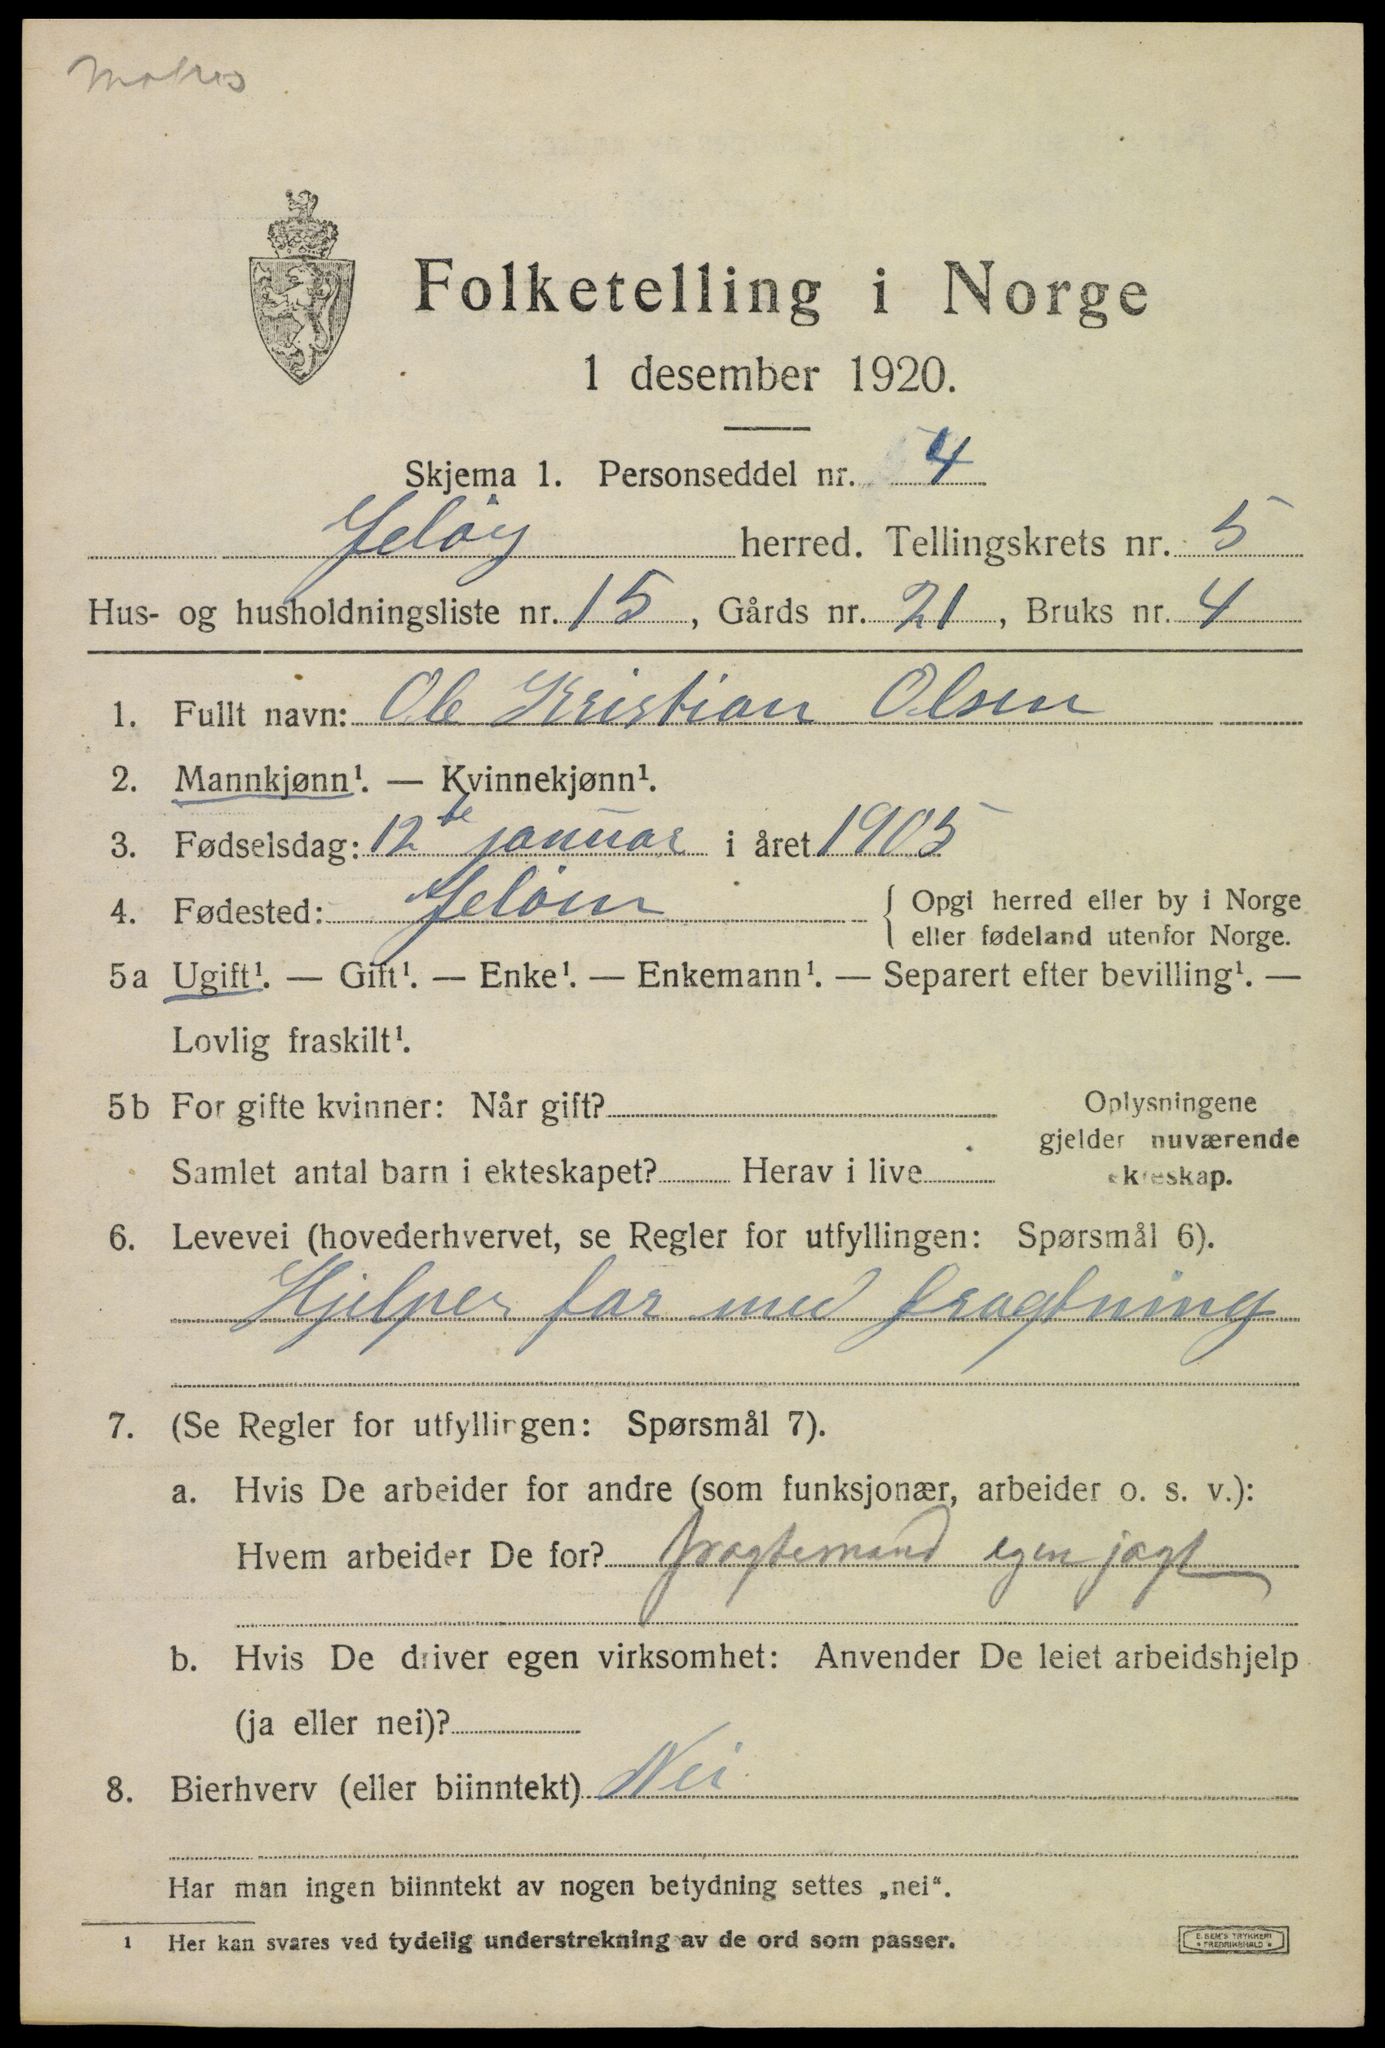 Folketelling i Norge
1 desember 1920.
Skjema 1. Personseddel nr. 4
Jeløy herred. Tellingskrets nr. 5
Hus- og husholdningsliste nr. 15, Gårds nr. 21, Bruks nr. 4
1. Fullt navn: Ole Kristian Olsen
2. Mannkjønn¹. — Kvinnekjønn¹.
3. Fødselsdag: 12te januar i året 1905
4. Fødested: Jeløen { Opgi herred eller by i Norge
eller fødeland utenfor Norge.
5a Ugift¹. — Gift¹. — Enke¹. — Enkemann¹. — Separert efter bevilling¹. —
Lovlig fraskilt¹.
5b For gifte kvinner: Når gift? Oplysningene
gjelder nuværende
Samlet antal barn i ekteskapet? Herav i live ekteskap.
6. Levevei (hovederhvervet, se Regler for utfyllingen: Spørsmål 6).
Hjelper far med fragtning
7. (Se Regler for utfyllingen: Spørsmål 7).
a. Hvis De arbeider for andre (som funksjonær, arbeider o. s. v.):
Hvem arbeider De for? fragtemand egen jagt
b. Hvis De driver egen virksomhet: Anvender De leiet arbeidshjelp
(ja eller nei)?
8. Bierhverv (eller biinntekt) Nei
Har man ingen biinntekt av nogen betydning settes „nei“.
¹ Her kan svares ved tydelig understrekning av de ord som passer.
E. SEM'S TRYKKERI
* FREDRIKSHALD *